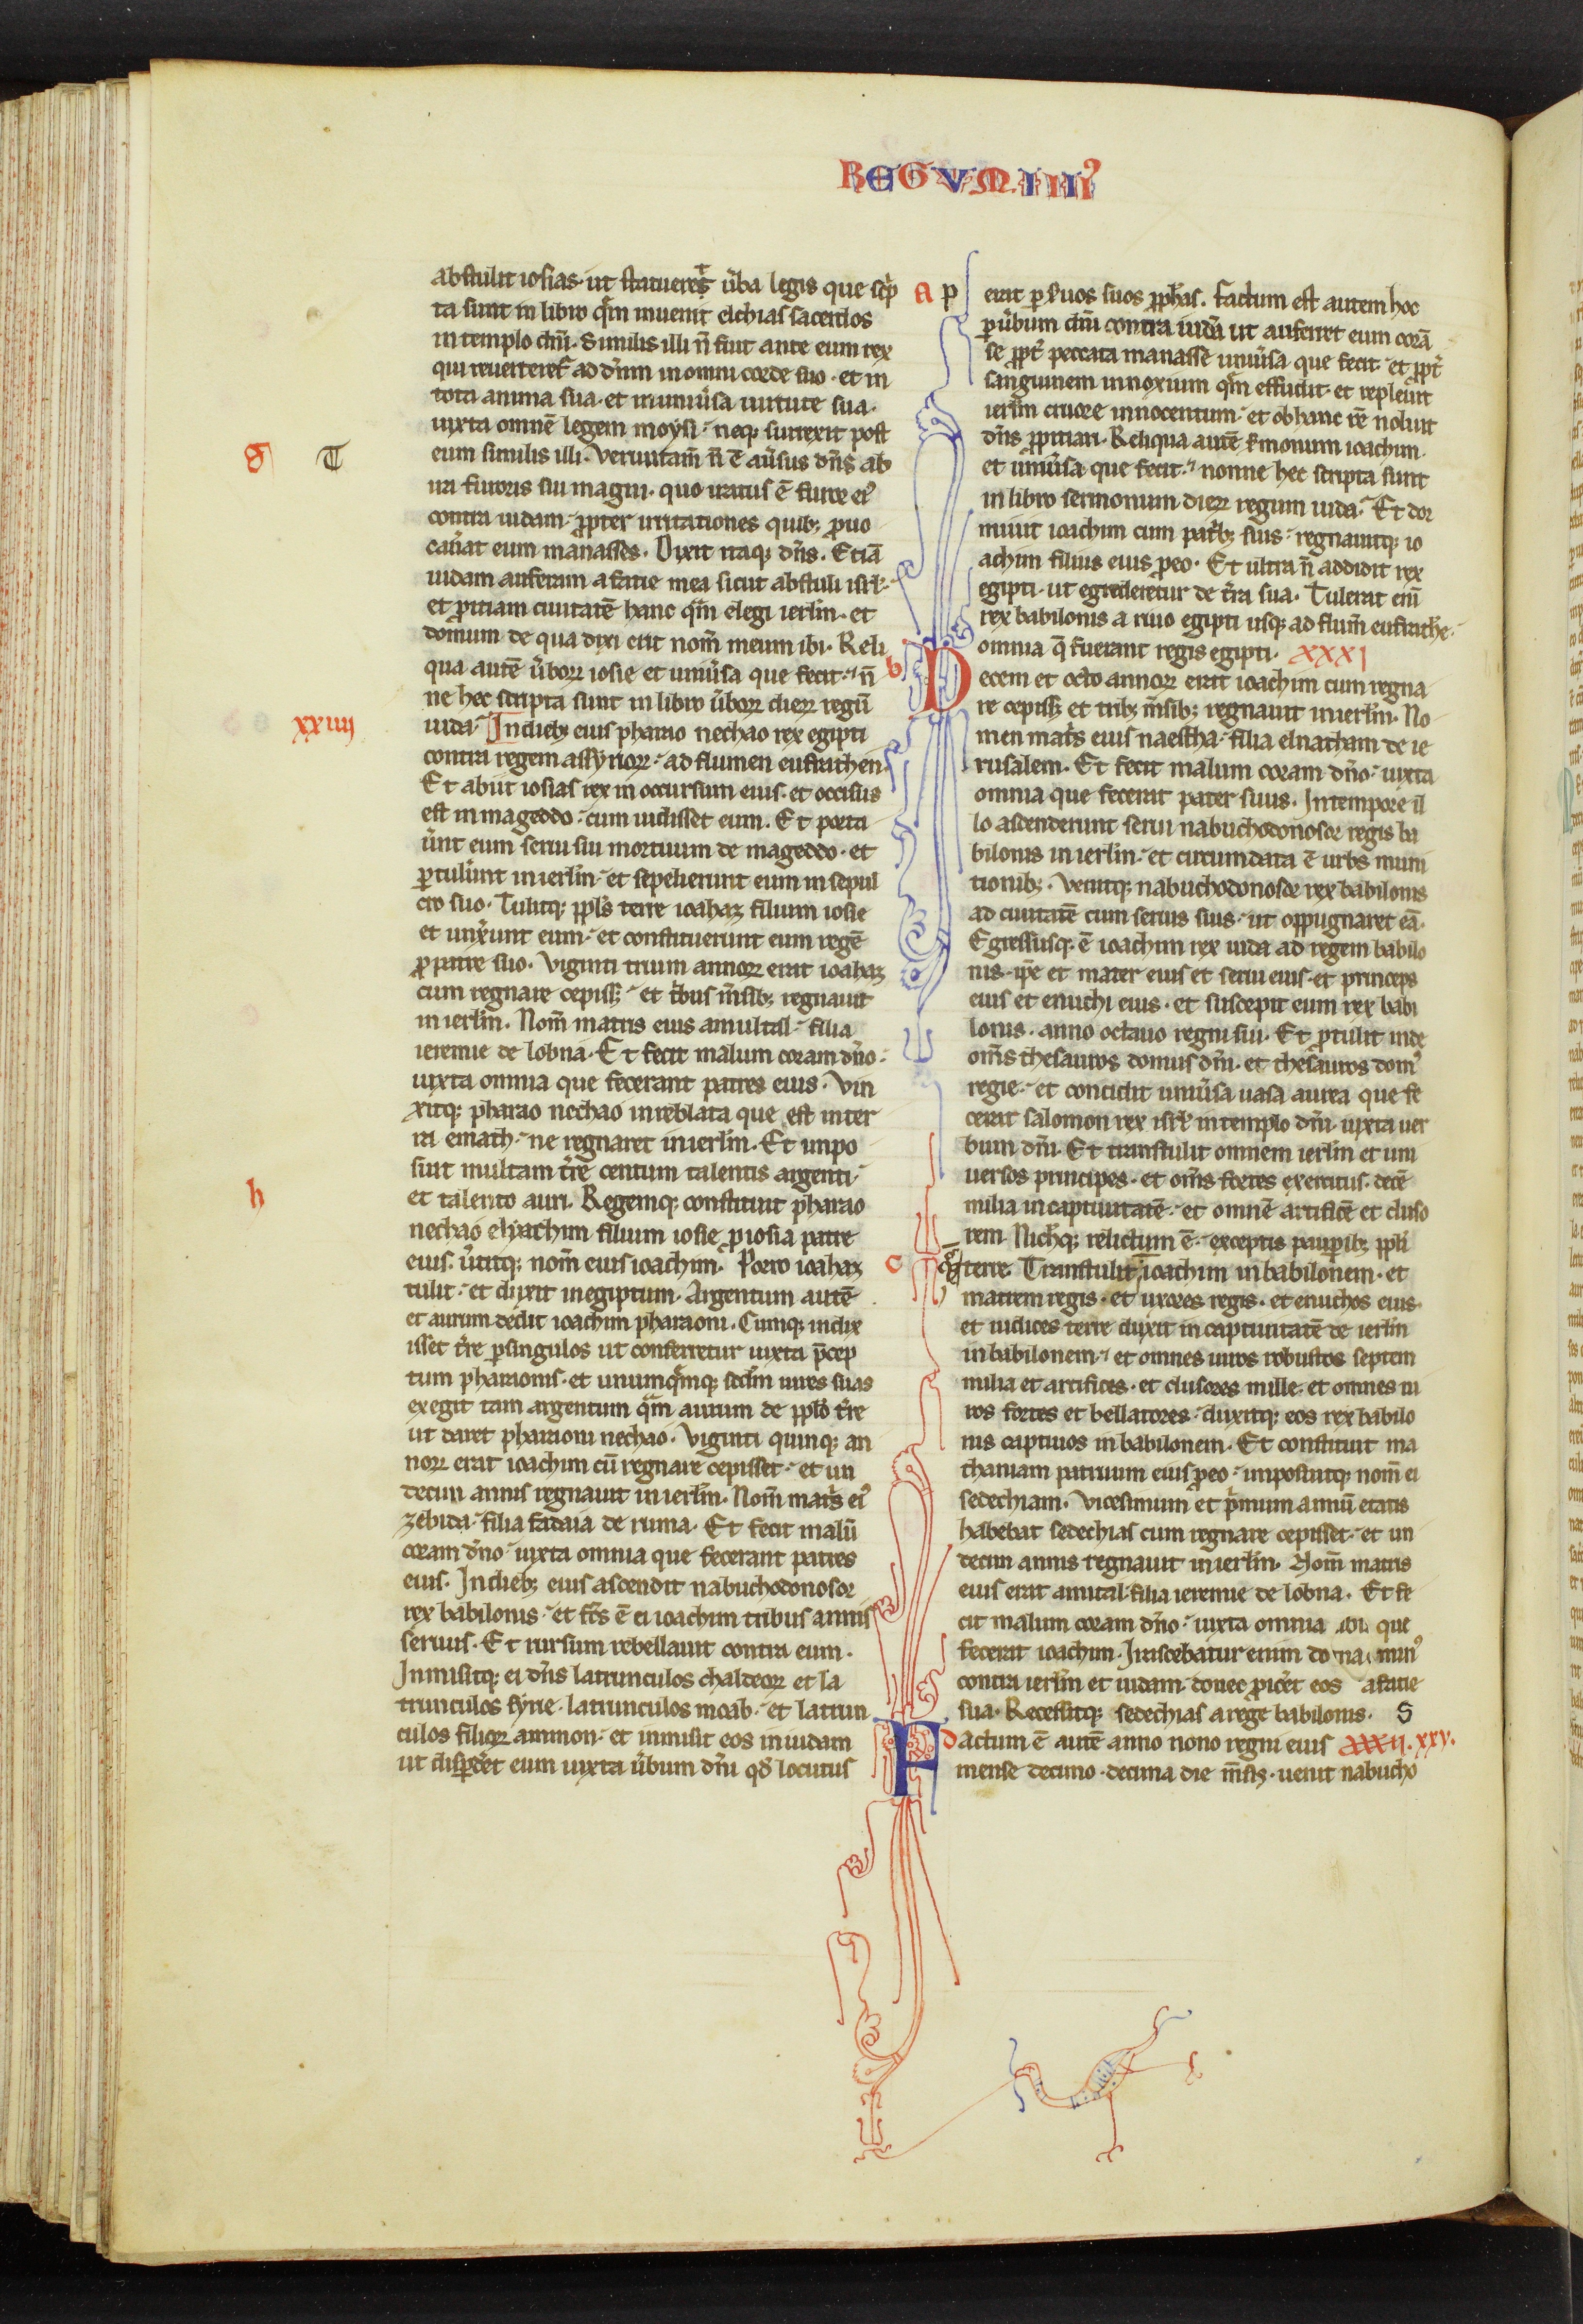 REGVM IIIIꝰ
abstulit iosias· ut statueret ůba legis que scͥp
ta sunt in libro qͣm inuenit elchias sacerdos
in templo dn̄i· Similis illi n̄ fuit ante eum rex
qui reuerteretͬ ad dn̄m in omni corde suo· et in
tota anima sua· et in uniůsa uirtute sua·
iuxta omnē legem moysi· neqꝫ surrexit post
g T eum similis illi· Verumtam̄ n̄ ē aůsus dn̄s ab
ira furoris sui magni· quo iratus ē furor eiꝰ
contra iudam· ꝓpter irritationes quibꝫ ꝓuo
cau̓at eum manasses· Dixit itaqꝫ dn̄s· Etiā
iudam auferam a facie mea sicut abstuli isrl̓·
et ꝓiciam ciuitatē hanc qͣm elegi ierlm̄· et
domum de qua dixi erit nom̄ meum ibi· Reli
qua autē ůborꝝ iosie et uniůsa que fecit· n̄
ne hec scripta sunt in libro ůborꝝ dierꝝ regū
xxiiii iuda· In diebꝫ eius pharao nechao rex egipti
contra regem assyriorꝝ· ad flumen eufrathen·
Et abiit iosias rex in occursum eius· et occisus
est in mageddo· cum uidisset eum· Et porta
ůnt eum serui sui mortuum de mageddo· et
ꝑtulůnt in ierlm̄· et sepelierunt eum in sepul
cro suo· Tulitqꝫ ppl̓s terre ioahaz filium iosie
et unxerunt eum· et constituerunt eum regē
ꝓ patre suo· Viginti trium annorꝝ erat ioahaz
cum regnare cepissꝫ· et tͥbus m̄sibꝫ regnauit
in ierlm̄· Nom̄ matris eius amultal· filia
ieremie de lobna· Et fecit malum coram dn̄o·
iuxta omnia que fecerant patres eius· Vin
xitqꝫ pharao nechao in reblata que est in ter
ra emath· ne regnaret in ierlm̄· Et inpo
suit multam tr̓re centum talentis argenti·
h et talento auri· Regemqꝫ constituit pharao
nechao elyachim filium iosie ꝓ iosia patre
eius· ůtitqꝫ nom̄ eius ioachim· Porro ioahaz
tulit· et duxit in egiptum· Argentum autē
et aurum dedit ioachim pharaoni· Cumqꝫ indix
isset tr̓re ꝑ singulos ut conferretur iuxta p̄cep
tum pharaonis· et unumqͣmqꝫ scdm̄ uires suas
exegit tam argentum qͣm aurum de ppl̓o tr̓re
ut daret pharaoni nechao· Viginti quinqꝫ an
norꝝ erat ioachim cū regnare cepisset· et un
decim annis regnauit in ierlm̄· Nom̄ matͥs eiꝰ
zebida· filia fadaia de ruma· Et fecit malū
coram dn̄o· iuxta omnia que fecerant patres
eius· In diebꝫ eius ascendit nabuchodonosor
rex babilonis· et fc̄s ē ei ioachim tribus annis
seruus· Et rursum rebellauit contra eum·
Inmisitqꝫ ei dn̄s latrunculos chaldeorꝝ et la
trunculos syrie· latrunculos moab· et latrun
culos filiorꝝ ammon· et inmisit eos in iudam
ut disꝑdet̓ eum iuxta ůbum dn̄i qd̓ locutus
a p erat ꝑ ẜuos suos ꝓph̓as· Factum est autem hoc
ꝑ ůbum dn̄i contra iudā ut auferret eum corā
se ꝓpt̓ peccata manasse uniůsa que fecit· et ꝓpt̓
sanguinem innoxium qͣm effudit· et repleuit
ierlm̄ cruore innocentum· et ob hanc rē noluit
dn̄s ꝓpitiari· Reliqua autē ẜmonum ioachim·
et uniůsa que fecit· nonne hec scripta sunt
in libro sermonum dierꝝ regum iuda· Et dor
miuit ioachim cum patͥbꝫ suis· regnauitqꝫ io
achim filius eius ꝓ eo· Et ultra n̄ addidit rex
egipti· ut egrederetur de tr̓ra sua· Tulerat enī
rex babilonis a riuo egipti usqꝫ ad flum̄ eufrathē·
omnia q̄ fuerant regis egipti· XXXI
b Decem et octo annorꝝ erat ioachim cum regna
re cepissꝫ et tribꝫ m̄sibꝫ regnauit in ierlm̄· No
men matͥs eius naestha· filia elnatham de ie
rusalem· Et fecit malum coram dn̄o· iuxta
omnia que fecerat pater suus· In tempore il
lo ascenderunt serui nabuchodonosor regis ba
bilonis in ierlm̄· et circumdata ē urbs muni
tionibꝫ· Venitqꝫ nabuchodonosor rex babilonis
ad ciuitatē cum seruis suis· ut oppugnaret eā·
Egressusqꝫ ē ioachim rex iuda ad regem babilo
nis· ip̄e et mater eius et serui eius· et princeps
eius et enuchi eius· et suscepit eum rex babi
lonis· anno octauo regni sui· Et ꝓtulit inde
om̄s thesauros domus dn̄i· et thesauros domꝰ
regie· et concidit uniůsa uasa aurea que fe
cerat salomon rex isrl̓ in templo dn̄i· iuxta uer
bum dn̄i· Et transtulit omnem ierlm̄ et uni
uersos principes· et om̄s fortes exercitus· decē
milia in captiuitatē· et omnē artificē et cluso
rem· Nichilqꝫ relictum ē· exceptis pauꝑibꝫ ppl̓i
c terre· Transtulit ioachim in babilonem· et
matrem regis· et uxores regis· et enuchos eius·
et iudices terre duxit in captiuitatē de ierlm̄
in babilonem· et omnes uiros robustos septem
milia et artifices· et clusores mille· et omnes ui
ros fortes et bellatores· duxitqꝫ eos rex babilo
nis captiuos in babilonem· Et constituit ma
thaniam patruum eius ꝓ eo· imposuitqꝫ nom̄ ei
sedechiam· Vicesimum et pͥmum annū etatis
habebat sedechias cum regnare cepisset· et un
decim annis regnauit in ierlm̄· Nom̄ matris
eius erat amital· filia ieremie de lobna· Et fe
cit malum coram dn̄o· iuxta omnia que
fecerat ioachim· Irascebatur enim
contra ierlm̄ et iudam· donec ꝓicet̓ eos a facie
sua· Recessitqꝫ sedechias a rege babilonis· S
d Factum ē autē anno nono regni eius XXXII· xxv·
mense decimo· decima die m̄sis· uenit nabucho